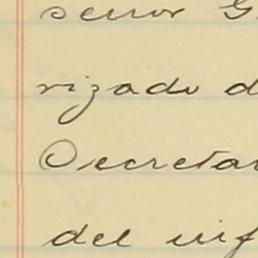 señor G
rizado d
Secreta
del inf